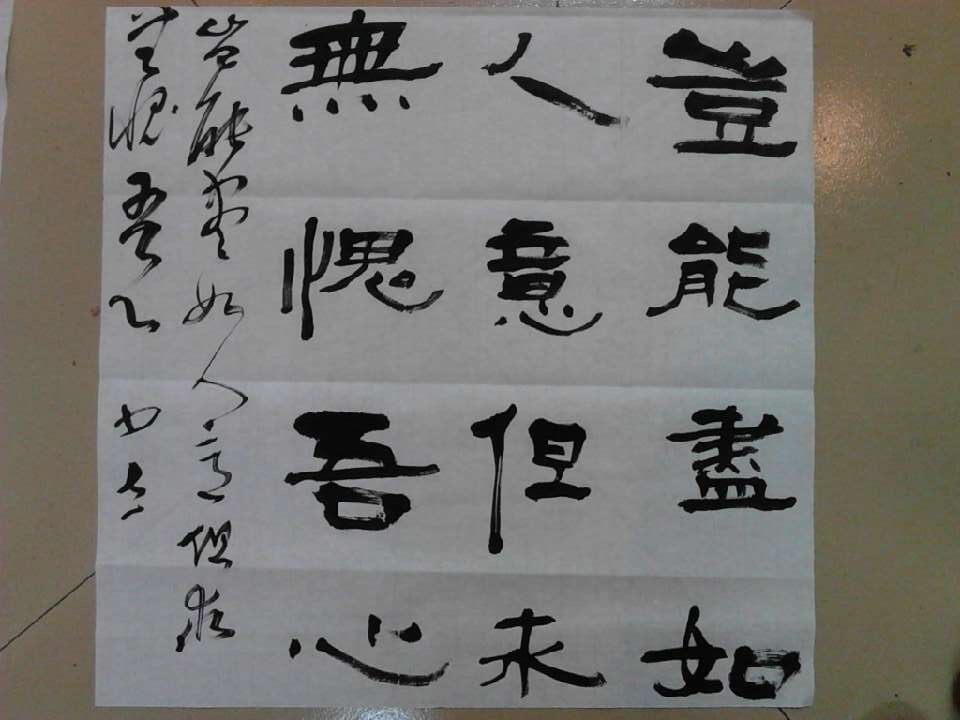 豈能盡如
人意但未
無愧吾心
豈能盡如人意但求
無愧吾心